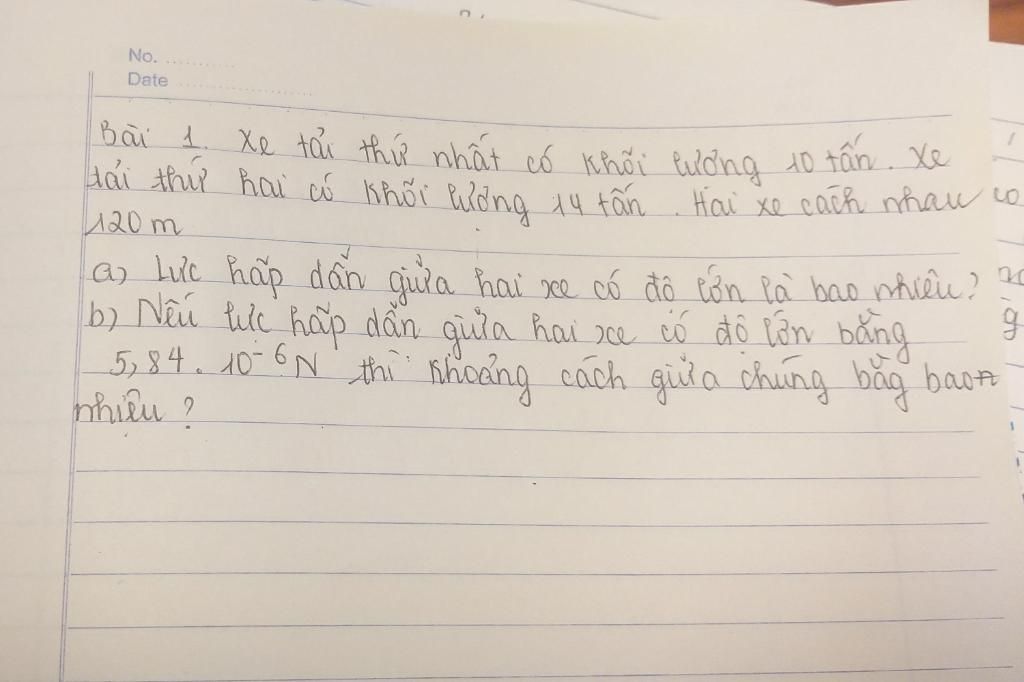 No. ...........
Date .....................
Bài 1. Xe tải thứ nhất có khối lương 10 tấn. Xe
tải thứ hai có khối lương 14 tấn. Hai xe cách nhau
120 m
a) Lực hấp dẫn giữa hai xe có độ lớn là bao nhiêu?
b) Nếu lực hấp dẫn giữa hai xe có độ lớn bằng
5,84. 10⁻⁶ N thì khoảng cách giữa chúng bằg bao
nhiêu?